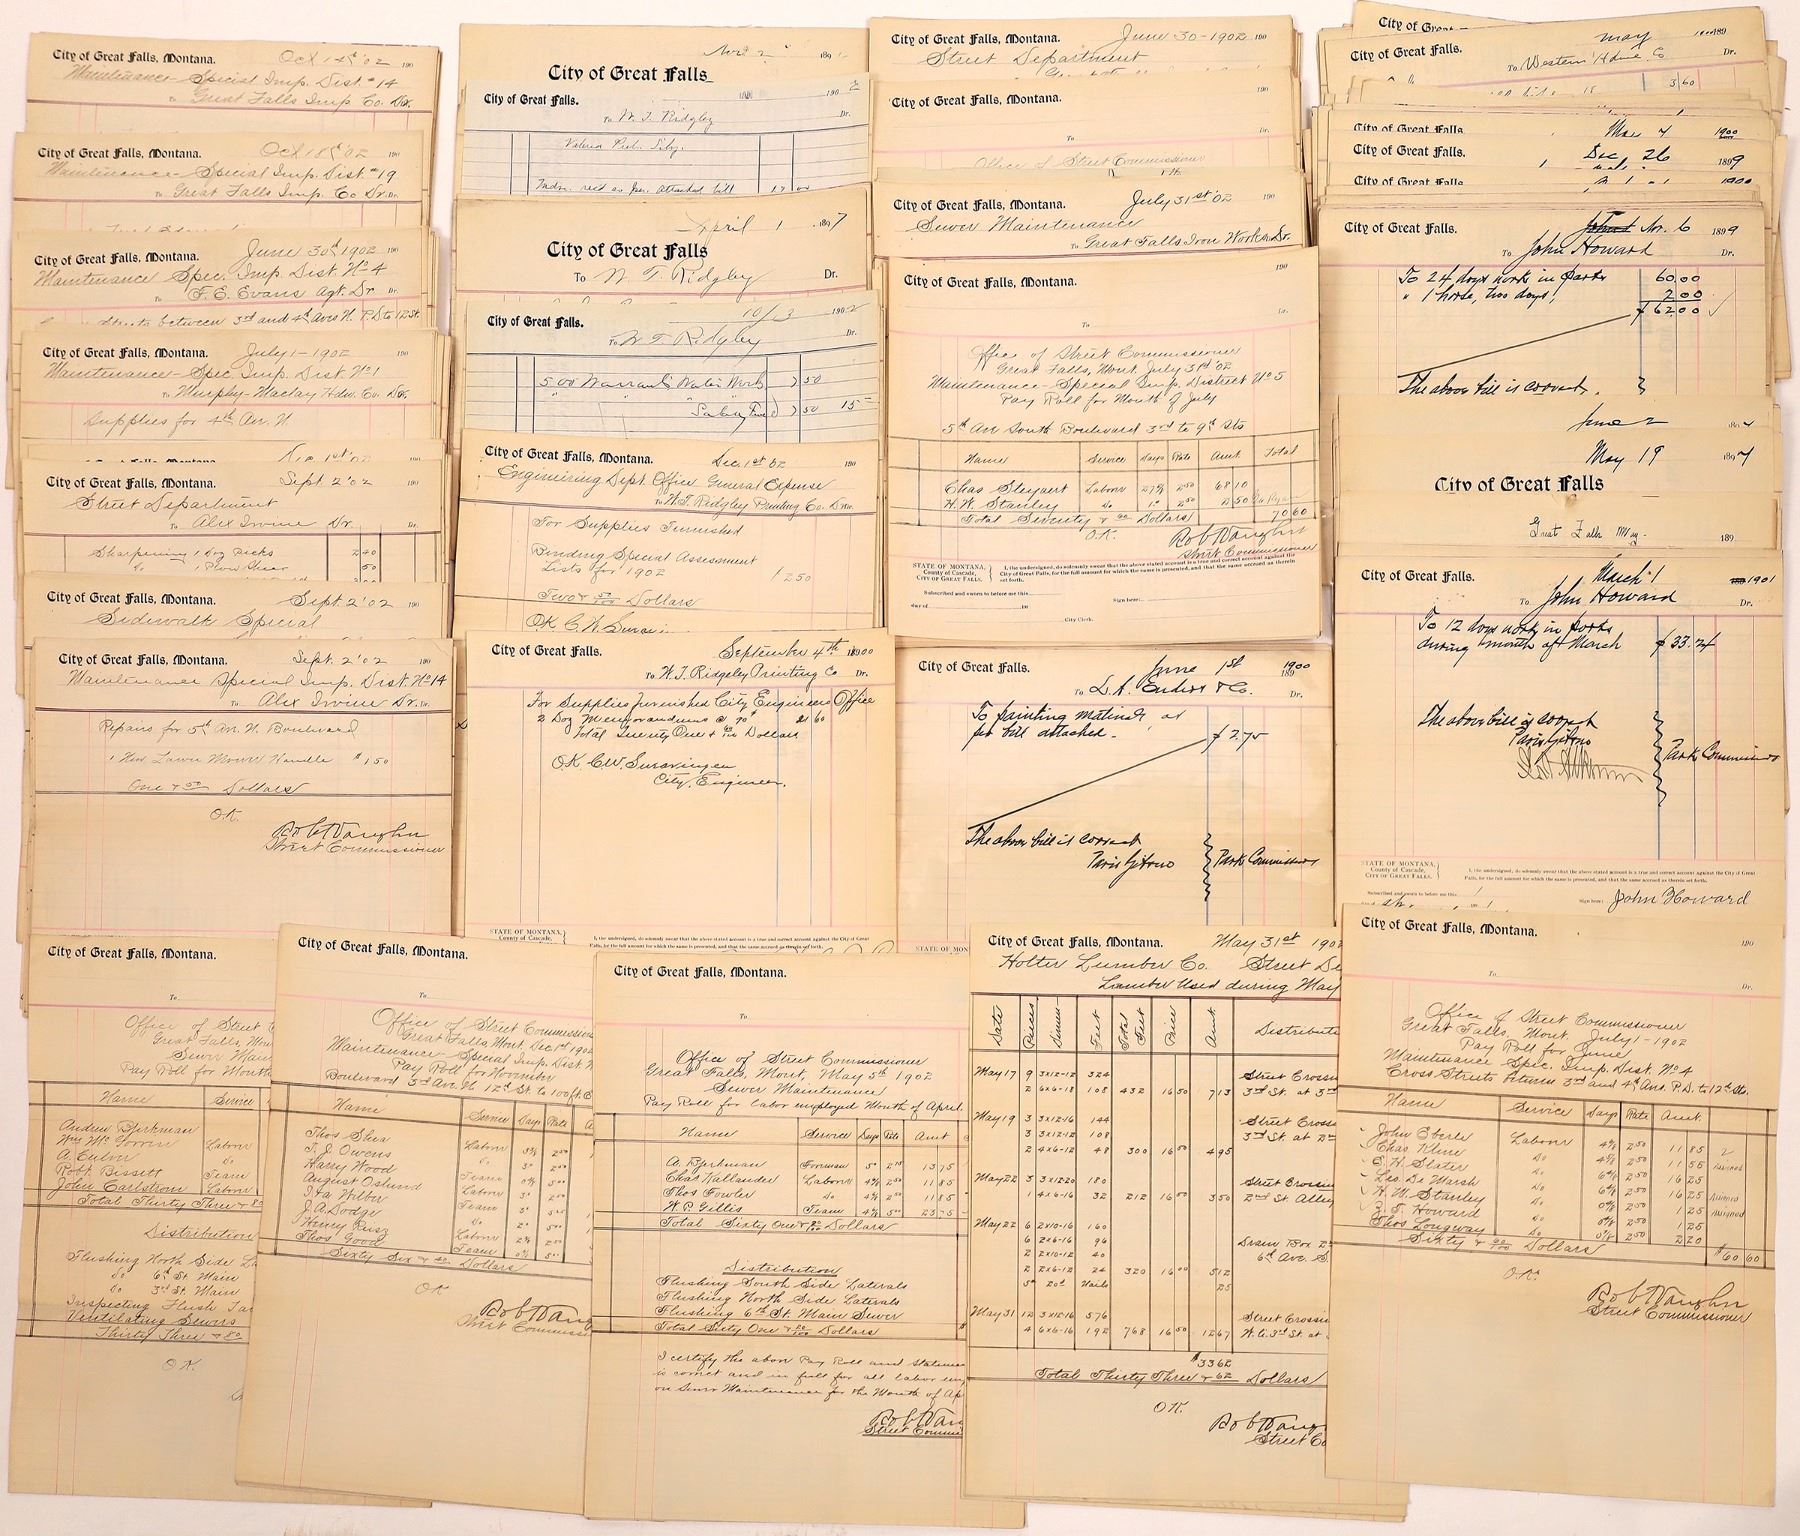 City of Great Falls, Montana. Oct 14th '02 190
Maintenance - Special Imp. Dist. #14
To Great Falls Imp. Co Dr.
City of Great Falls, Montana. Oct 18th '02 190
Maintenance - Special Imp. Dist. #19
To Great Falls Imp. Co Dr. Dr.
City of Great Falls, Montana. June 30th 1902 190
Maintenance Spec. Imp. Dist. No 4
To F. E. Evans Agt. Dr Dr.
Streets between 3rd and 4th Aves N. P.D to 12 St.
City of Great Falls, Montana. July 1 - 1902 190
Maintenance - Spec. Imp. Dist. No 1
To Murphy-Maclay Hdw. Co. Dr.
Supplies for 4th Av. N
City of Great Falls, Montana. Sept 2 '02 190
Street Department
To Alex Irvine Dr Dr.
Sharpening 1 Doz Picks 2 40
Do 1 Plow Shear 50
City of Great Falls, Montana. Sept. 2 '02 190
Sidewalk Special
City of Great Falls, Montana. Sept. 2 '02 190
Maintenance Special Imp. Dist. No 14
To Alex Irvine Dr. Dr.
Repairs for 5th Av. N. Boulevard
1 New Lawn Mower Handle $1 50
One & 50/100 Dollars
O.K.
Rob Vaughn
Street Commissioner
City of Great Falls, Montana.
To
Office of Street
Great Falls, Mon
Sewer Main
Pay Roll for Month
Name Service
Andrew Bjerkman
A. Culver Do
Robt. Bissett Team
John Carlstrom Labor
Total Thirty Three & 80
Distribution
Flushing North Side L
Do 6th St. Main
Do 3rd St. Main
Inspecting Flush Tan
Ventilating Sewers
Thirty Three & 80
O K.
Nov 2 189
City of Great Falls
City of Great Falls. 190 2
To W. T. Ridgley Dr.
17 00
April 1 1897
City of Great Falls
To W. T. Ridgley Dr.
10/13 1902
City of Great Falls.
To W. T. Ridgley Dr.
500 Warrants Water Work 7 50
" " Salary Fund 7 50 15
City of Great Falls, Montana. Dec. 1st '02 190
Engineering Dept Office General Expense
To W. T. Ridgley Printing Co. Dr. Dr.
For Supplies Furnished
Binding Special Assessment
Lists for 1902 $2 50
Two & 50/100 Dollars
City of Great Falls. September 4th 1900
To W. T. Ridgeley Printing Co Dr.
For Supplies furnished City Engineers Office
2 Doz Memorandums @ 90 21 60
Total Twenty One & 60/100 Dollars
O.K. C.W. Swearingen
City Engineer.
STATE OF MONTANA,
County of Cascade,
I, the undersigned, do solemnly swear that the above stated account is a true and correct account against the City of Great
Falls, for the full amount for which the same is presented, and that the same accrued as therein set forth.
City of Great Falls, Montana.
To
Office of Street Commission
Great Falls, Mont. Dec. 1st 1902
Maintenance - Special Imp. Dist. N
Pay Roll for November
Boulevard 3rd Av. N. 12th St. to 100 ft. E
Name Service Days Rate
Thos Shea Labor
T. J. Owens Do
Harry Wood Team
August Oslund Labor
Ira Wilber Team
J. A. Dodge Do
Henry Reisz Labor
Thos Good Team
Sixty Six & 40 Dollars
O K
Rob Vaug
Street Commiss
City of Great Falls, Montana.
To
Office of Street Commissioner
Great Falls, Mont, May 5th 1902
Sewer Maintenance
Pay Roll for labor employed Month of April.
Name Service Days Rate Amt
A. Bjerkman Foreman 5 2 75 13 75
Chas Wallander Labor 4 6/8 2 50 11 85
Thos Fowler Do 4 6/8 2 50 11 85
W. P. Gillis Team 4 6/8 5 00 23 75
Total Sixty One & 20/100 Dollars
Distribution
Flushing South Side Laterals
Flushing North Side Laterals
Flushing 6th St. Main Sewer
Total Sixty One & 20/100 Dollars
I certify the above Pay Roll and Stateme
is correct and in full for all labor em
on Sewer Maintenance for the Month of Ap
Rob Vau
Street Commi
City of Great Falls, Montana. June 30 - 1902 190
Street Department
City of Great Falls, Montana. 190
To Dr.
Office of Street Commissioner
City of Great Falls, Montana. July 31st '02 190
Sewer Maintenance
To Great Falls Iron Works Dr.
City of Great Falls, Montana. 190
To Dr.
Office of Street Commissioner
Great Falls, Mont. July 31st '02
Maintenance - Special Imp. District No 5
Pay Roll for Month of July
5th Av South Boulevard 3rd to 9th Sts
Name Service Days Rate Amt Total
Chas Steyaert Labor 27 2/8 2 50 68 10
H. W. Stanley Do 1 2 50 2 50
Total Seventy & 60/100 Dollars 70 60
O.K. Rob Vaughn
Street Commissioner
STATE OF MONTANA,
County of Cascade,
CITY OF GREAT FALLS.
I, the undersigned, do solemnly swear that the above stated account is a true and correct account against the
City of Great Falls, for the full amount for which the same is presented, and that the same accrued as therein
set forth.
Subscribed and sworn to before me this
day of 190
Sign here:
City Clerk.
City of Great Falls. June 1st 1900
To L. A. Enders & Co. Dr.
To painting material as
per bill attached. $ 2.75
The above bill is correct
Paris Gibson Park Commissioners
STATE OF MON
City of Great Falls, Montana. May 31st 1902
Holter Lumber Co. Street De
Lumber Used during May
Date Pieces Dimen Feet Total Feet Price Amt Distribute
May 17 9 3x12-12 324 Street Crossin
2 6x6-18 108 432 16 50 7 13 3rd St. at 3rd
May 19 3 3x12-16 144 Street Crossi
3 3x12-12 108 3rd St. at 2nd
2 4x6-12 48 300 16 50 4 95
May 22 3 3x12-20 180 Street Crossin
1 4x6-16 32 212 16 50 3 50 2nd St Alley
May 22 6 2x10-16 160 Drain Box
6 2x6-16 96 6th Ave S.
2 2x10-12 40
2 2x6-12 24 320 16 00 5 12
5# 20d Nails 25
May 31 12 3x12-16 576 Street Crossi
4 6x6-16 192 768 16 50 12 67
$33 62
Total Thirty Three & 62/100 Dollars
O K.
Rob Vaug
Street Co
City of Great Falls. May 189
To Western Hdwe. Co Dr.
3 60
City of Great Falls. May 7 1900
City of Great Falls. Dec. 26 1899
City of Great Falls. 1900
City of Great Falls. Nov. 6 1899
To John Howard Dr.
To 24 days work in parks 60.00
" 1 horse, two days 2 00
$ 62.00
The above bill is correct.
June 2 1897
May 19 1897
City of Great Falls
Great Falls May 189
City of Great Falls. March 1 1901
To John Howard Dr.
To 12 days work in parks
during month of March $ 33.24
The above bill is correct
Paris Gibson
Park Commissioners
STATE OF MONTANA,
County of Cascade,
CITY OF GREAT FALLS.
I, the undersigned, do solemnly swear that the above stated account is a true and correct account against the City of Great
Falls, for the full amount for which the same is presented, and that the same accrued as therein set forth.
Subscribed and sworn to before me this
Sign here: John Howard
City of Great Falls, Montana. 190
To Dr.
Office of Street Commissioner
Great Falls, Mont. July 1 - 1902
Pay Roll for June
Maintenance Spec. Imp. Dist. No. 4
Cross Streets between 3rd and 4th Avs. P.D. to 12th Sts.
Name Service Days Rate Amt.
John Eberle Labor 4 6/8 2 50 11 85
Chas Kline Do 4 5/8 2 50 11 55
E. H. Slater Do 6 4/8 2 50 16 25
Leo De Marsh Do 6 4/8 2 50 16 25
H. W. Stanley Do 0 4/8 2 50 1 25
Z. T. Howard Do 0 4/8 2 50 1 25
Thos Longway Do 2 50 2 20
Sixty & 60/100 Dollars $60 60
O.K.
Rob Vaughn
Street Commissioner